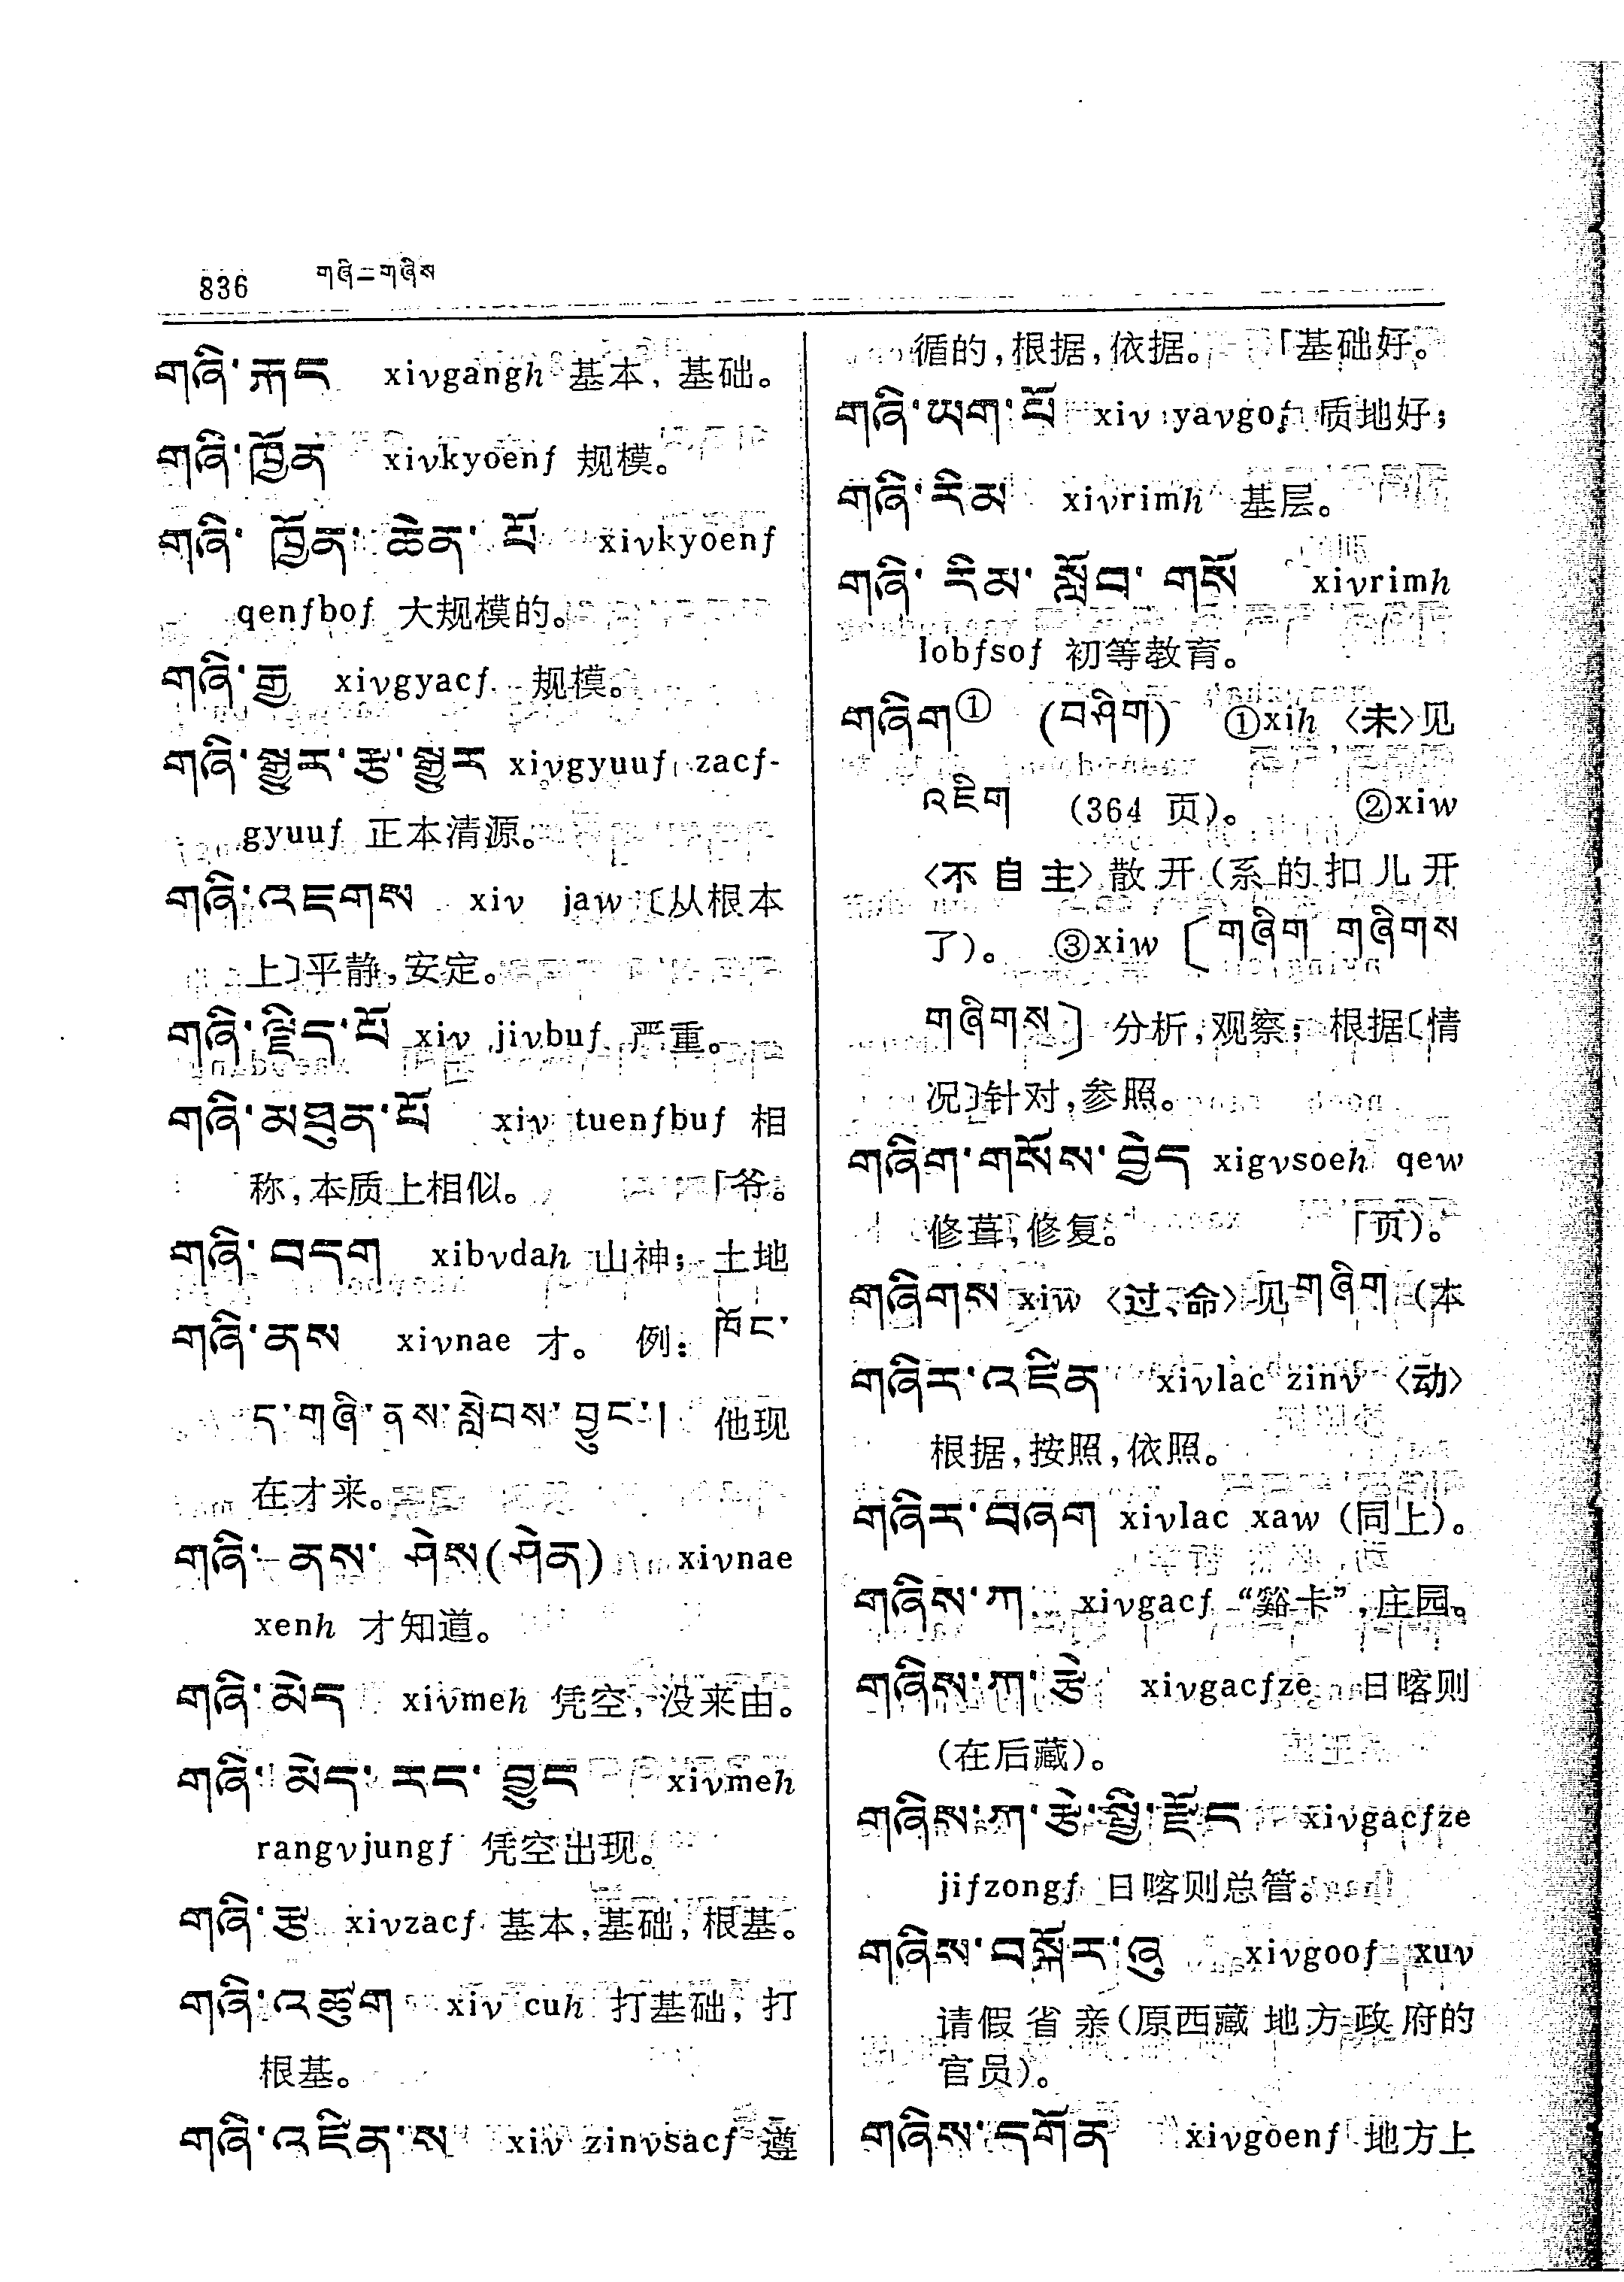 836 གཞི=གཞིས
གཞི་རྐང xivgangh 基本, 基础。
གཞི་ཁྱོན xivkyoenf 规模。
གཞི་ ཁྱོན་ ཆེན་ པོ xivkyoenf
qenfbof 大规模的。
གཞི་རྒྱ xivgyacf 规模。
གཞི་སྒྱུར་རྩ་སྒྱུར xivgyuuf zacf-
gyuuf 正本清源。
གཞི་འཇགས xiv jaw 〔从根本
上〕平静,安定。
གཞི་ལྗིད་པོ xiv jivbuf 严重。
གཞི་མཐུན་པོ xiv tuenfbuf 相
称,本质上相似。 「爷。
གཞི་བདག xibvdah 山神; 土地
གཞི་ནས xivnae 才。 例: ཁོང་
ད་གཞི་ནས་སླེབས་བྱུང་། 他现
在才来。
གཞི་ ནས་ ཤེས(ཤེན) xivnae
xenh 才知道。
གཞི་མེད xivmeh 凭空, 没来由。
གཞི་ མེད་ རང་ བྱུང xivmeh
rangvjungf 凭空出现。
གཞི་རྩ xivzacf 基本,基础,根基。
གཞི་འཛུག xiv cuh 打基础, 打
根基。
གཞི་འཛིན་ས xiv zinvsacf 遵
循的,根据,依据。 「基础好。
གཞི་ཡག་པོ xiv yavgof 质地好;
གཞི་རིམ xivrimh 基层。
གཞི་ རིམ་ སློབ་ གསོ xivrimh
lobfsof 初等教育。
གཞིག① (བཤིག) ①xih 〈未〉见
འཇིག (364 页)。 ②xiw
〈不自主〉散开(系的扣儿开
了)。 ③xiw 〔གཞིག གཞིགས
གཞིགས〕 分析,观察; 根据〔情
况〕针对,参照。
གཞིག་གསོས་བྱེད xigvsoeh qew
修葺,修复。 「页)。
གཞིགས xiw 〈过、命〉见གཞིག (本
གཞིར་འཛིན xivlac zinv 〈动〉
根据,按照,依照。
གཞིར་བཞག xivlac xaw (同上)。
གཞིས་ཀ xivgacf “谿卡”,庄园。
གཞིས་ཀ་རྩེ xivgacfze 日喀则
(在后藏)。
གཞིས་ཀ་རྩེ་སྤྱི་རྫོང xivgacfze
jifzongf 日喀则总管。
གཞིས་བསྐོར་ཞུ xivgoof xuv
请假省亲(原西藏地方政府的
官员)。
གཞིས་དགོན xivgoenf 地方上